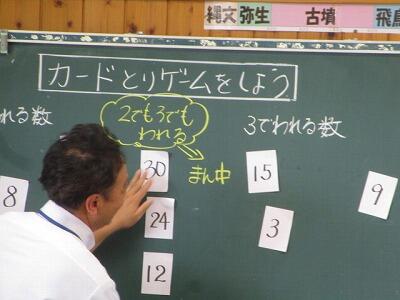 縄文 弥生 古墳 飛鳥
カードとりゲームをしよう
2でも3でも
われる
まん中
われる数
3でわれる数
8
30
24
12
15
3
9